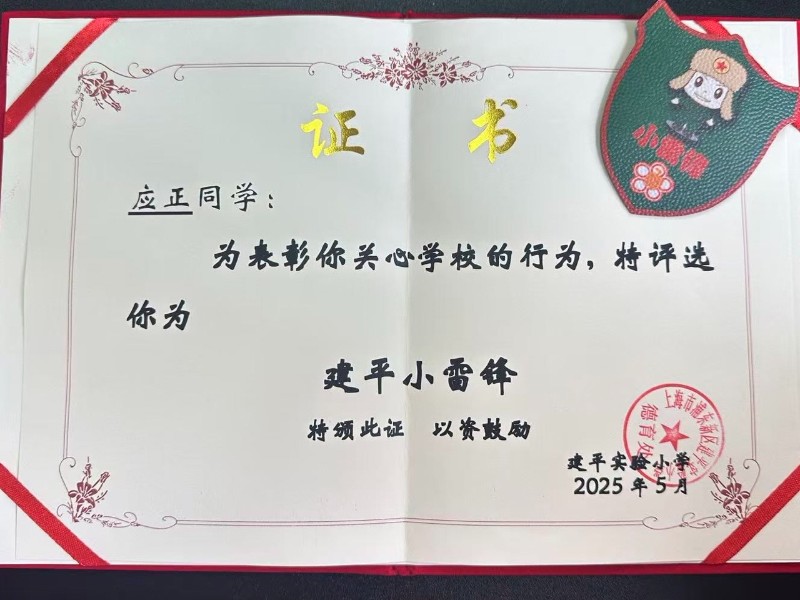 证书
小雷锋
应正同学：
为表彰你关心学校的行为，特评选
你为
建平小雷锋
特颁此证 以资鼓励
上海市浦东新区建平实验小学
德育处
建平实验小学
2025年5月